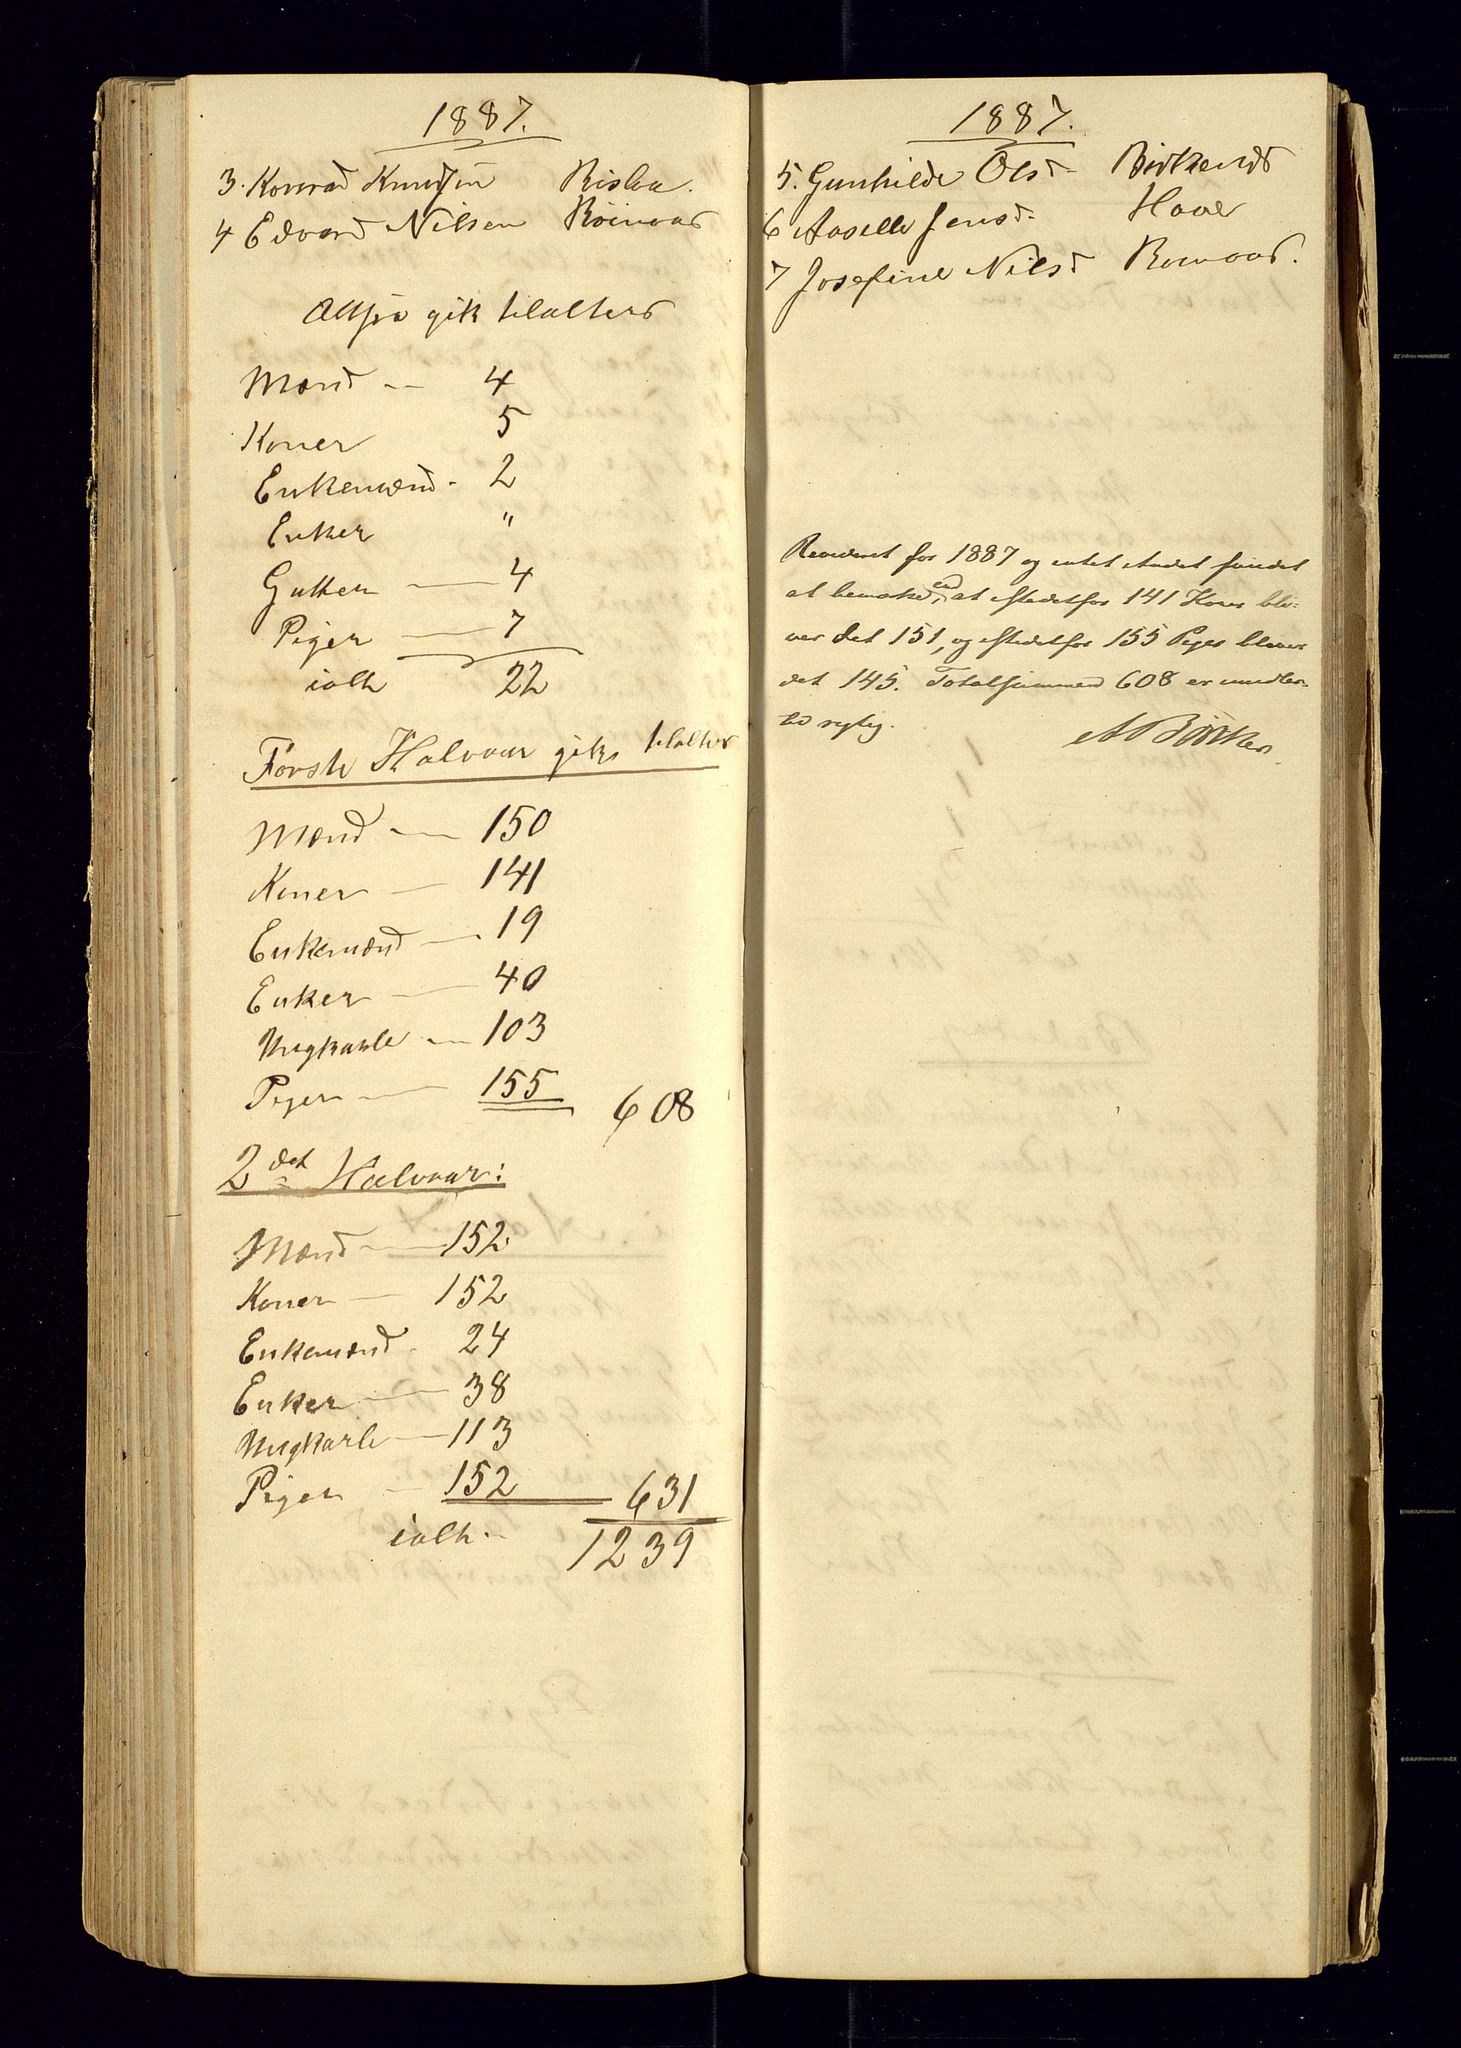 1887.
3. Konrad Knudsen Risløa.
4 Edvard Nilsen Röinaas
Altsaa gik tilalters
Mænd — 4
Koner 5
Enkemænd - 2
Enker "
Gutter — 4
Piger — 7
ialt 22
Første Halvaar gik tilalters
Mænd — 150
Koner — 141
Enkemænd — 19
Enker — 40
Ungkarle — 103
Piger — 155 608
2det Halvaar:
Mænd — 152
Koner — 152
Enkemænd - 24
Enker — 38
Ungkarle — 113
Piger — 152 631
ialt - 1239
1887.
5. Gunhilde Olsd.
6 Aaselle Jensd. Have
7 Josefine Nilsd
Revideret for 1887 og intet Andet fundet
at bemærke, end at istedetfor 141 Koner bli-
ver det 151, og istedetfor 155 Piger bliver
det 145. Totalsummen 608 er imidler-
tid rigtig.